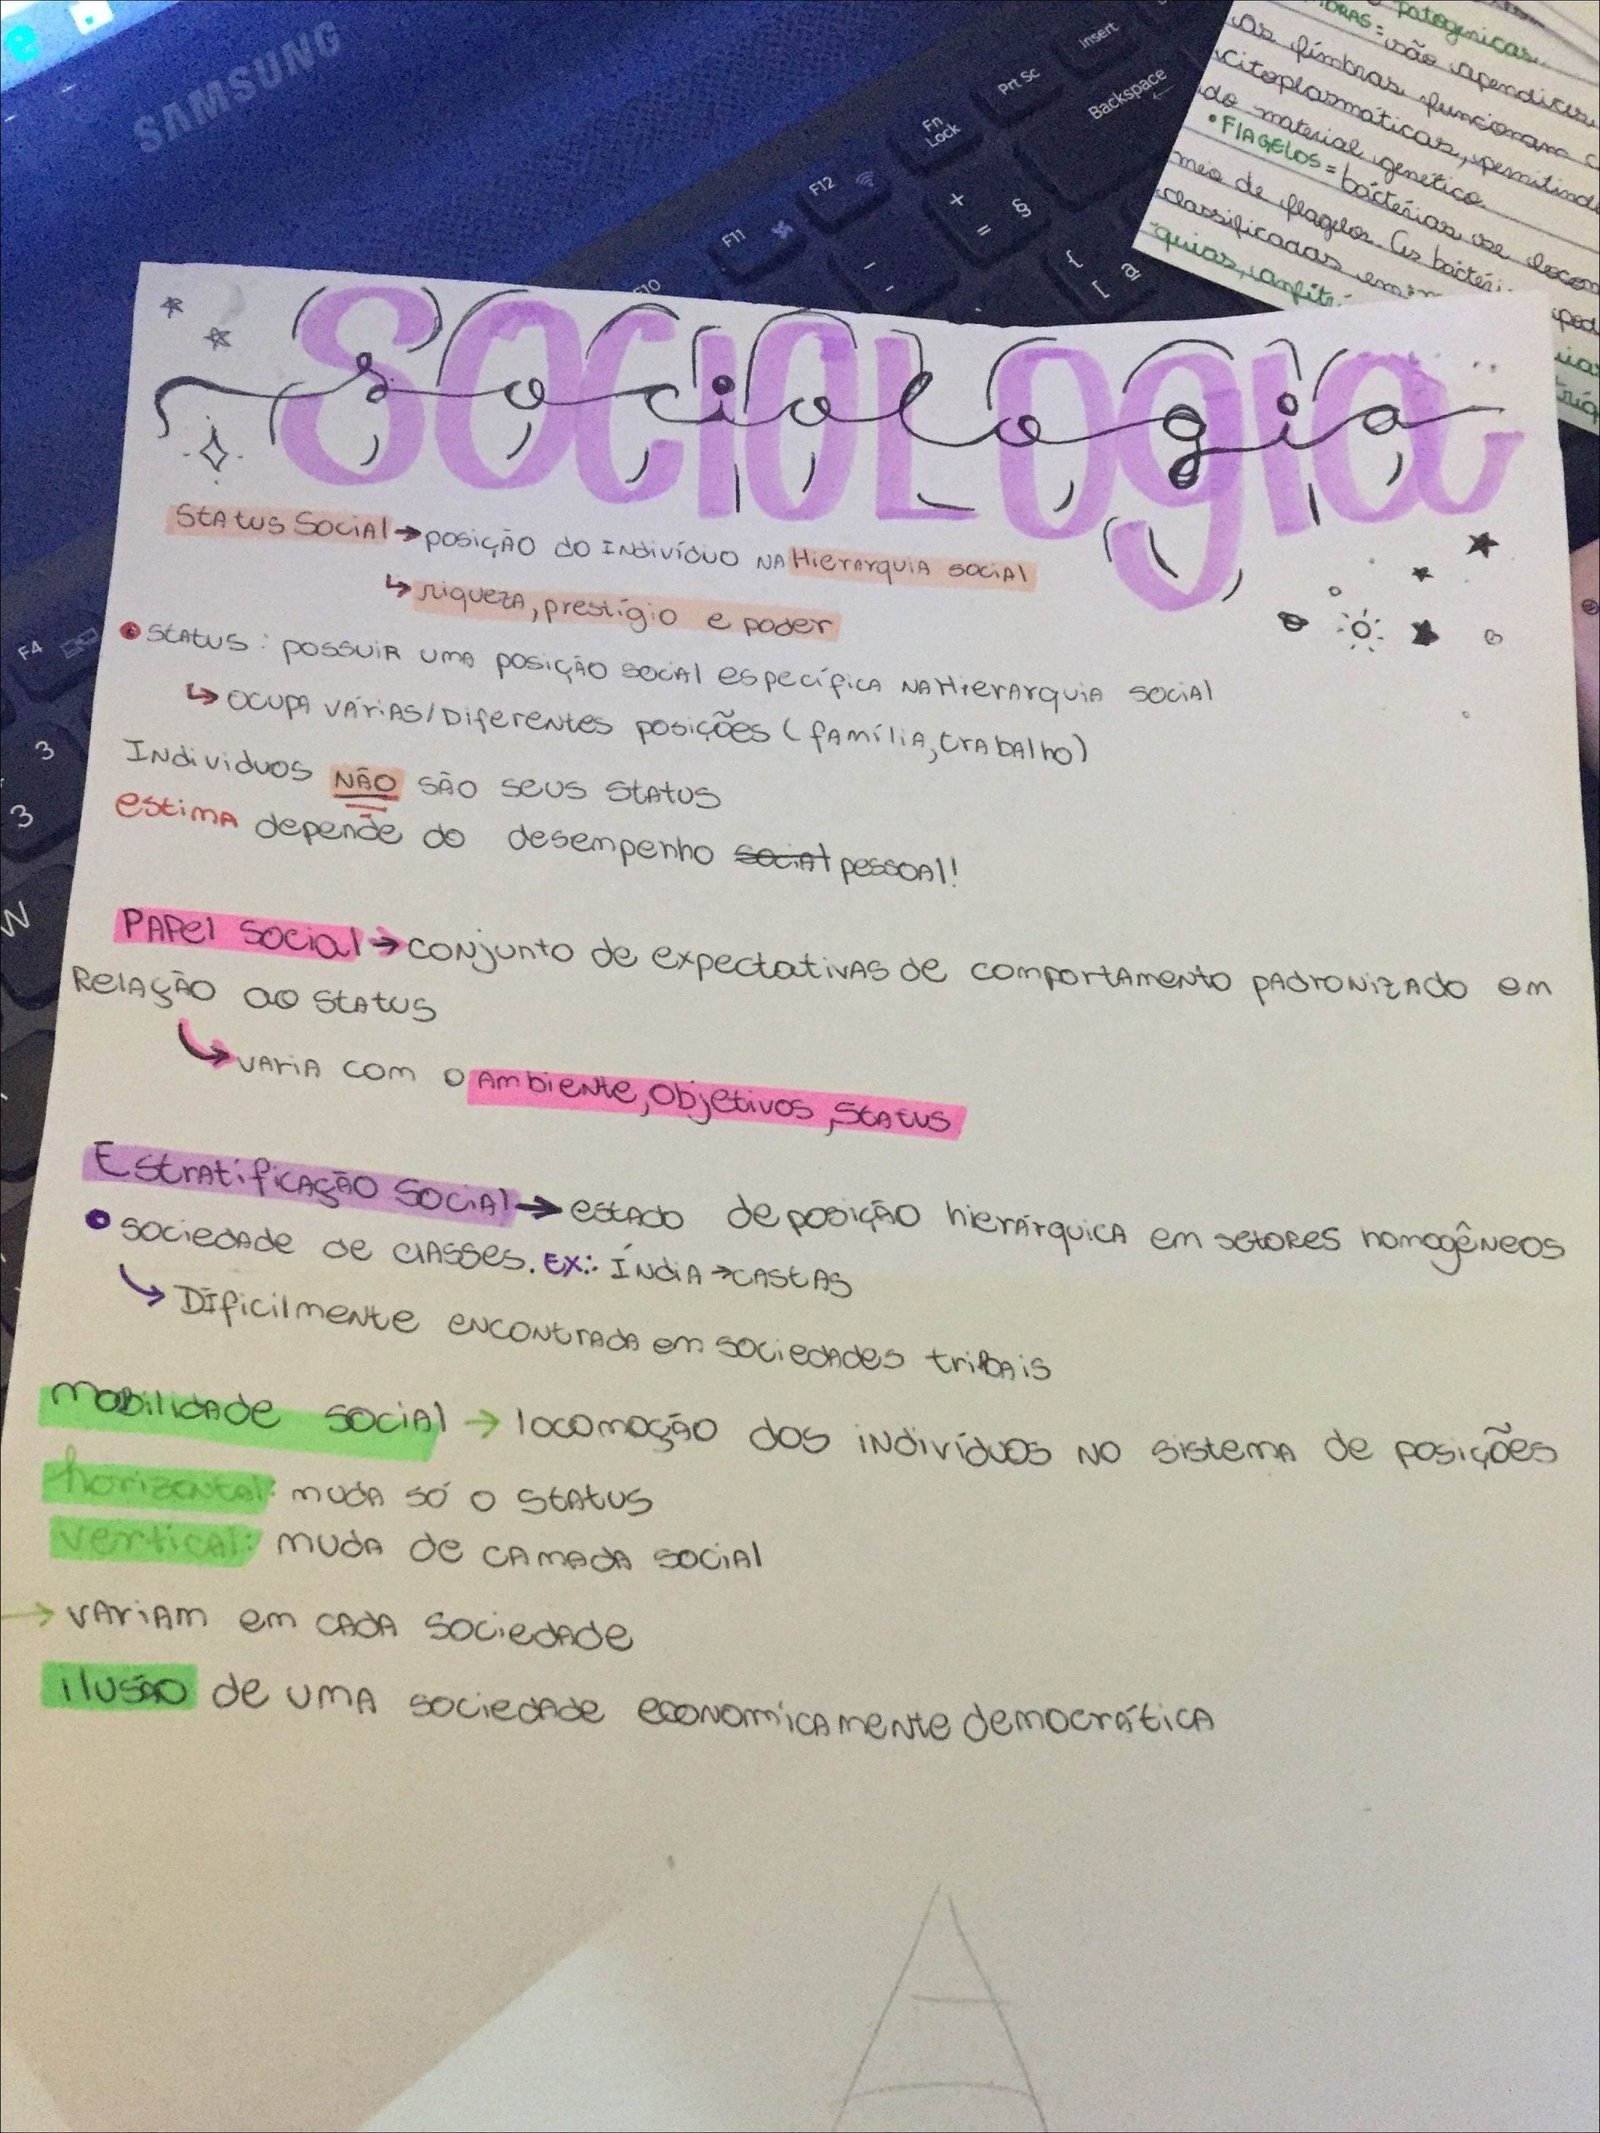 SAMSUNG
Insert
Prt Sc
Backspace
Fn
Lock
F12
F11
F10
+
=
§
-
{
[
ª
F4
3
3
W
patogênicas.
são apendices
as fímbrias funcionam
citoplasmáticas, permitind
do material genetico.
• FlAGELOS = bactérias se locom
meio de flagelos. (as bactéri
classificadas em
quias, anfitr
SOCIOLOgia
sociologia
Status Social → posição do Indivíduo na Hierarquia social
↳ riqueza, prestígio e poder
• Status: possuir uma posição social específica na Hierarquia social
↳ ocupa várias/diferentes posições (família, trabalho)
Individuos NÃO são seus status
estima depende do desempenho social pessoal!
Papel Social → conjunto de expectativas de comportamento padronizado em
Relação ao status
↳ varia com o ambiente, objetivos, status
Estratificação Social → estado de posição hierárquica em setores homogêneos
• sociedade de classes. Ex: Índia → castas
↳ Dificilmente encontrada em sociedades tribais
mobilidade social → locomoção dos indivíduos no sistema de posições
horizontal: muda só o status
vertical: muda de camada social
→ variam em cada sociedade
ilusão de uma sociedade economicamente democrática